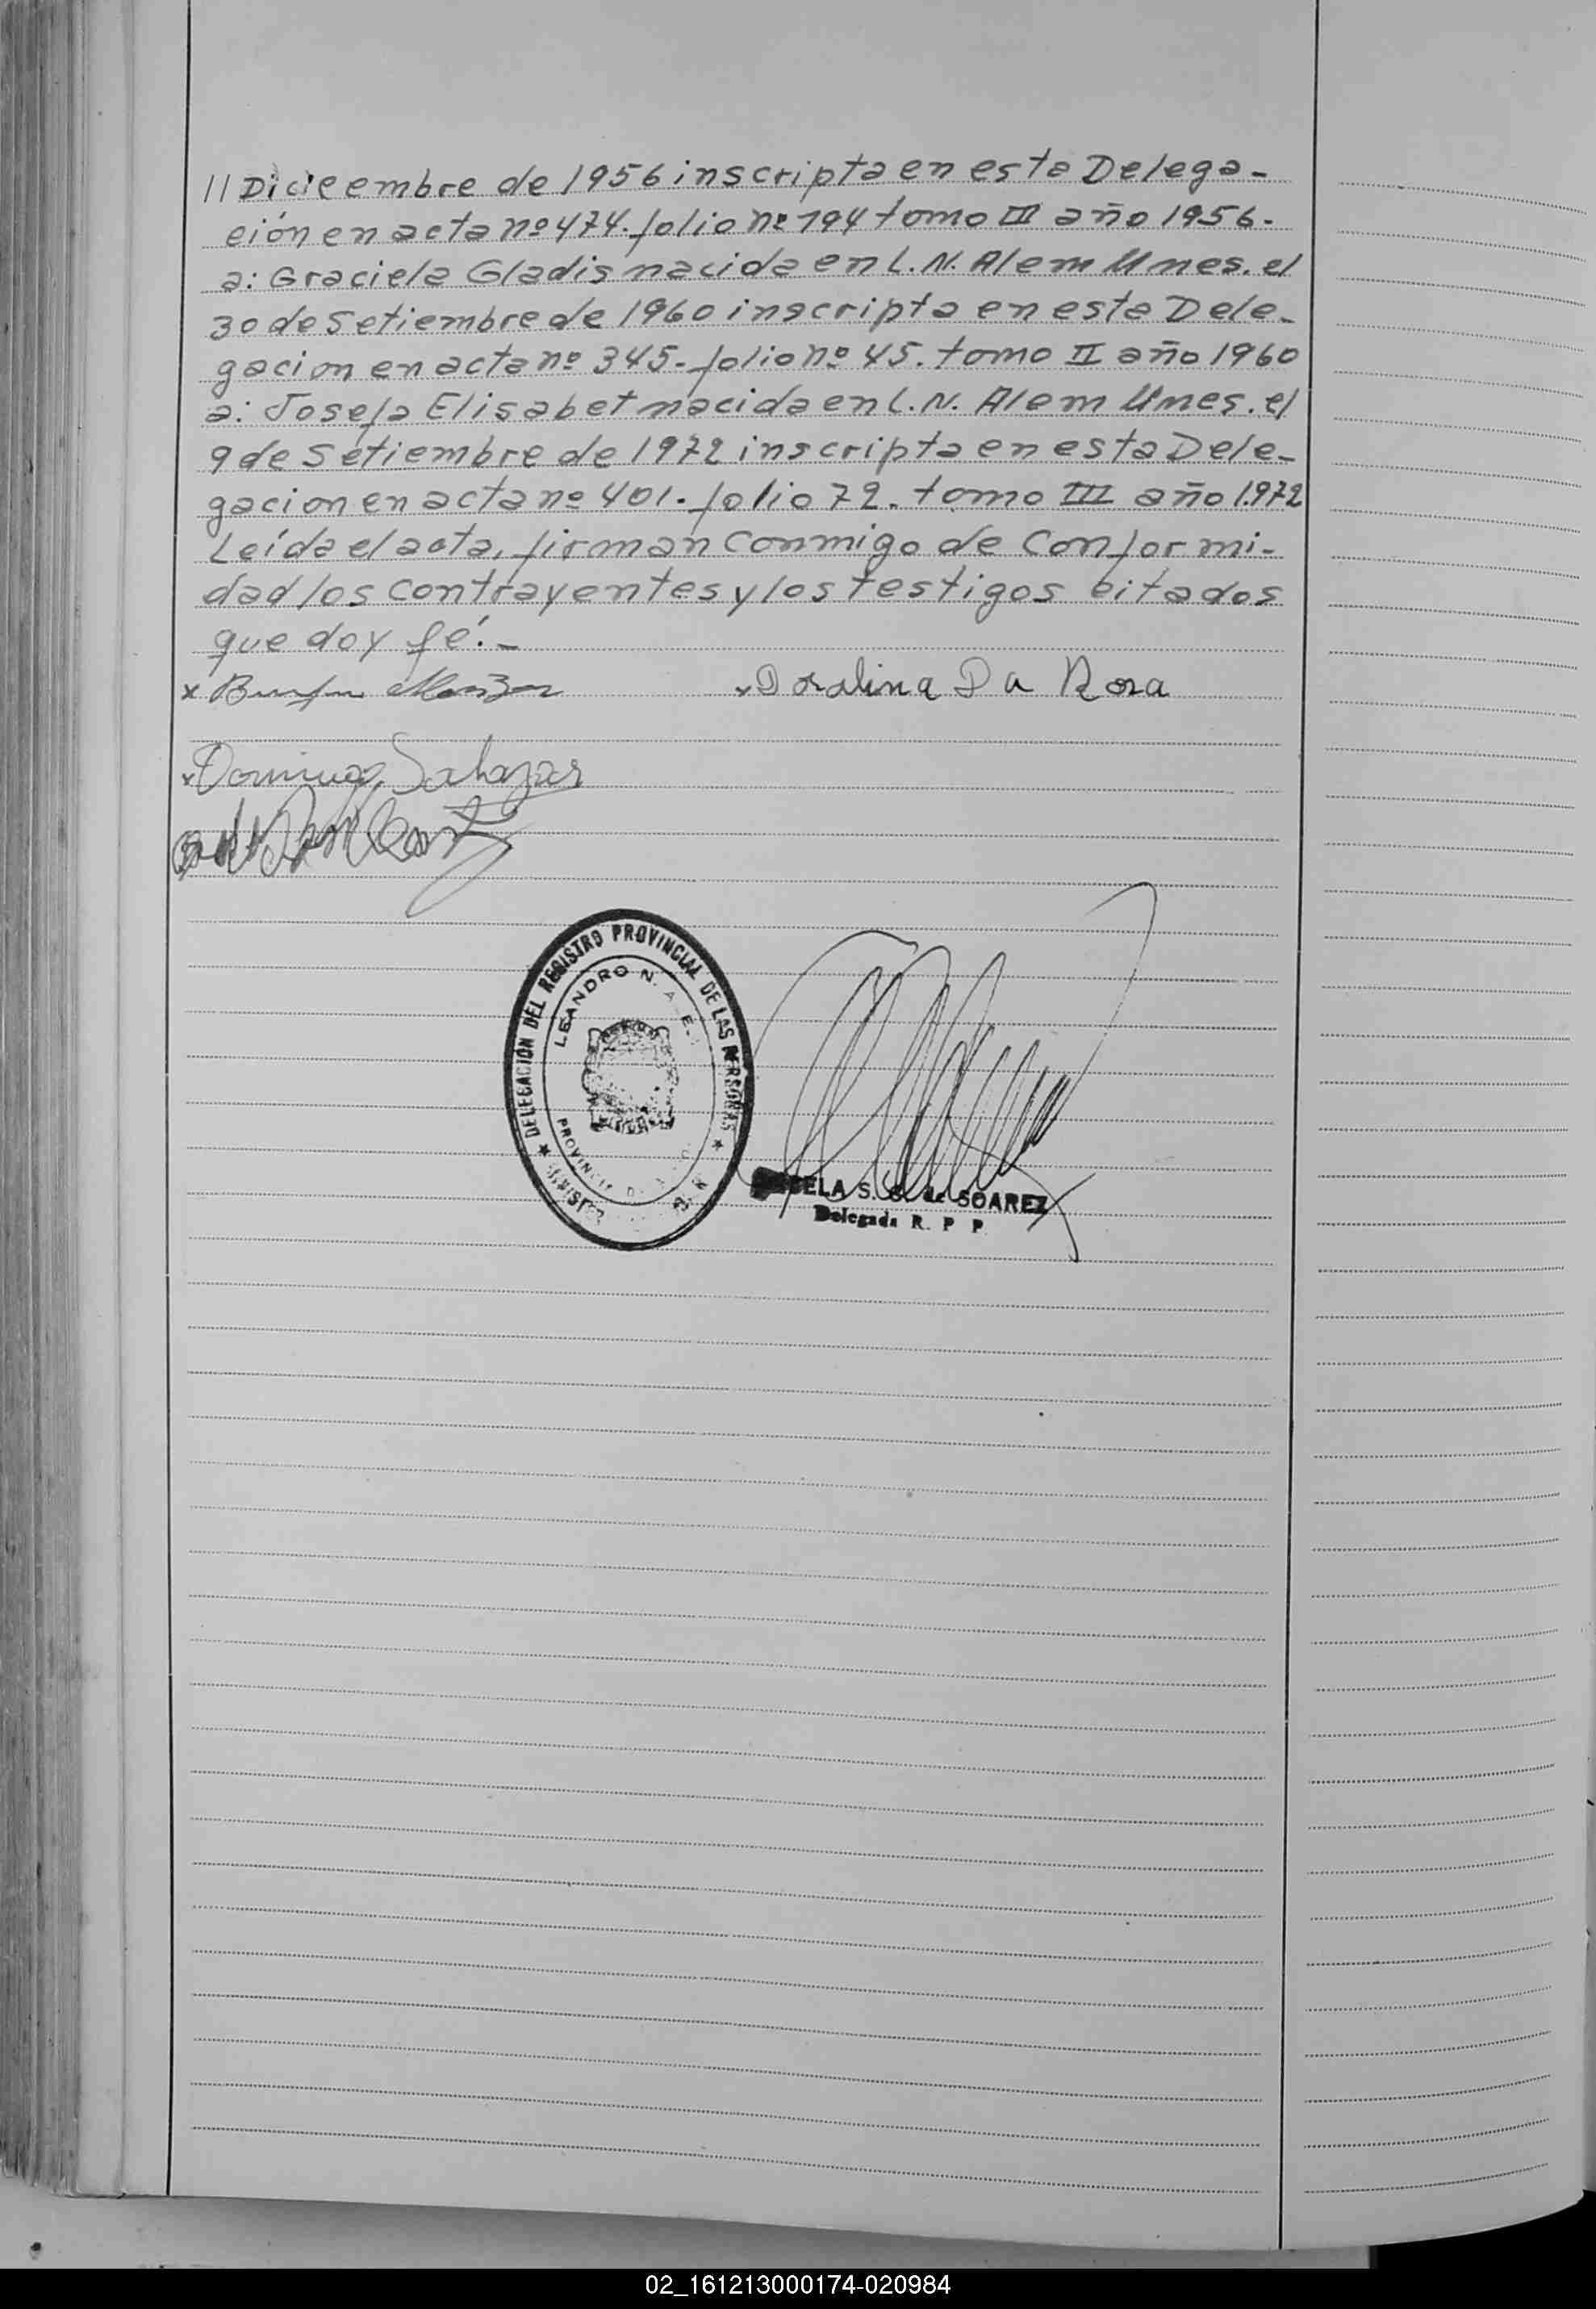 // Dicieembre de 1956 inscripta en esta Delega-
ción en acta nº 474. folio nº 194 tomo III año 1956.
a: Graciela Gladis nacida en L. N. Alem Mnes. el
30 de Setiembre de 1960 inscripta en esta Dele-
gacion en acta nº 345. folio nº 45. tomo II año 1960
a: Josefa Elisabet nacida en L. N. Alem Mnes. el
9 de Setiembre de 1972 inscripta en esta Dele-
gacion en acta nº 401. folio 72. tomo III año 1.972
Leída el acta, firman conmigo de conformi-
dad los contrayentes y los testigos citados
que doy fé.-
x x Doralina Da Rosa
x Domingo Salazar
DELEGACIÓN DEL REGISTRO PROVINCIAL DE LAS PERSONAS
LEANDRO N. A E
PROVINCI
S. de SOAREZ
Delegada R. P P
02_161213000174-020984